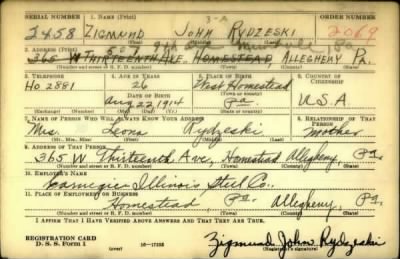 SERIAL NUMBER 1. NAME (Print) 3-A ORDER NUMBER (Print)
2458 ZIGMUND JOHN RYDZESKI 2069
2. ADDRESS (Print)
365 W THIRTEENTH AVE. HOMESTEAD, ALLEGHENY PA.
(Number and street or R. F. D. number) (Town) (County) (State)
3. TELEPHONE 4. AGE IN YEARS 5. PLACE OF BIRTH 6. COUNTRY OF CITIZENSHIP
HO 2881 26 West Homestead
DATE OF BIRTH
Aug 22, 1914 Pa. U.S.A
(Exchange) (Number) (Mo.) (Day) (Yr.) (State or country)
7. NAME OF PERSON WHO WILL ALWAYS KNOW YOUR ADDRESS 8. RELATIONSHIP OF THAT PERSON
Mrs. Leona Rydzeski mother
(Mr., Mrs., Miss) (First) (Middle) (Last)
9. ADDRESS OF THAT PERSON
365 W. Thirteenth Ave, Homestead Allegheny, Pa.
(Number and street or R. F. D. number) (Town) (County) (State)
10. EMPLOYER'S NAME
Carnegie-Illinois Steel Co.,
11. PLACE OF EMPLOYMENT OR BUSINESS
Homestead Pa. Allegheny, Pa.
(Number and street or R. F. D. number) (Town) (County) (State)
I AFFIRM THAT I HAVE VERIFIED ABOVE ANSWERS AND THAT THEY ARE TRUE.
REGISTRATION CARD
D. S. S. Form 1 (over) 16-17105 Zigmund John Rydzeski
(Registrant's signature)